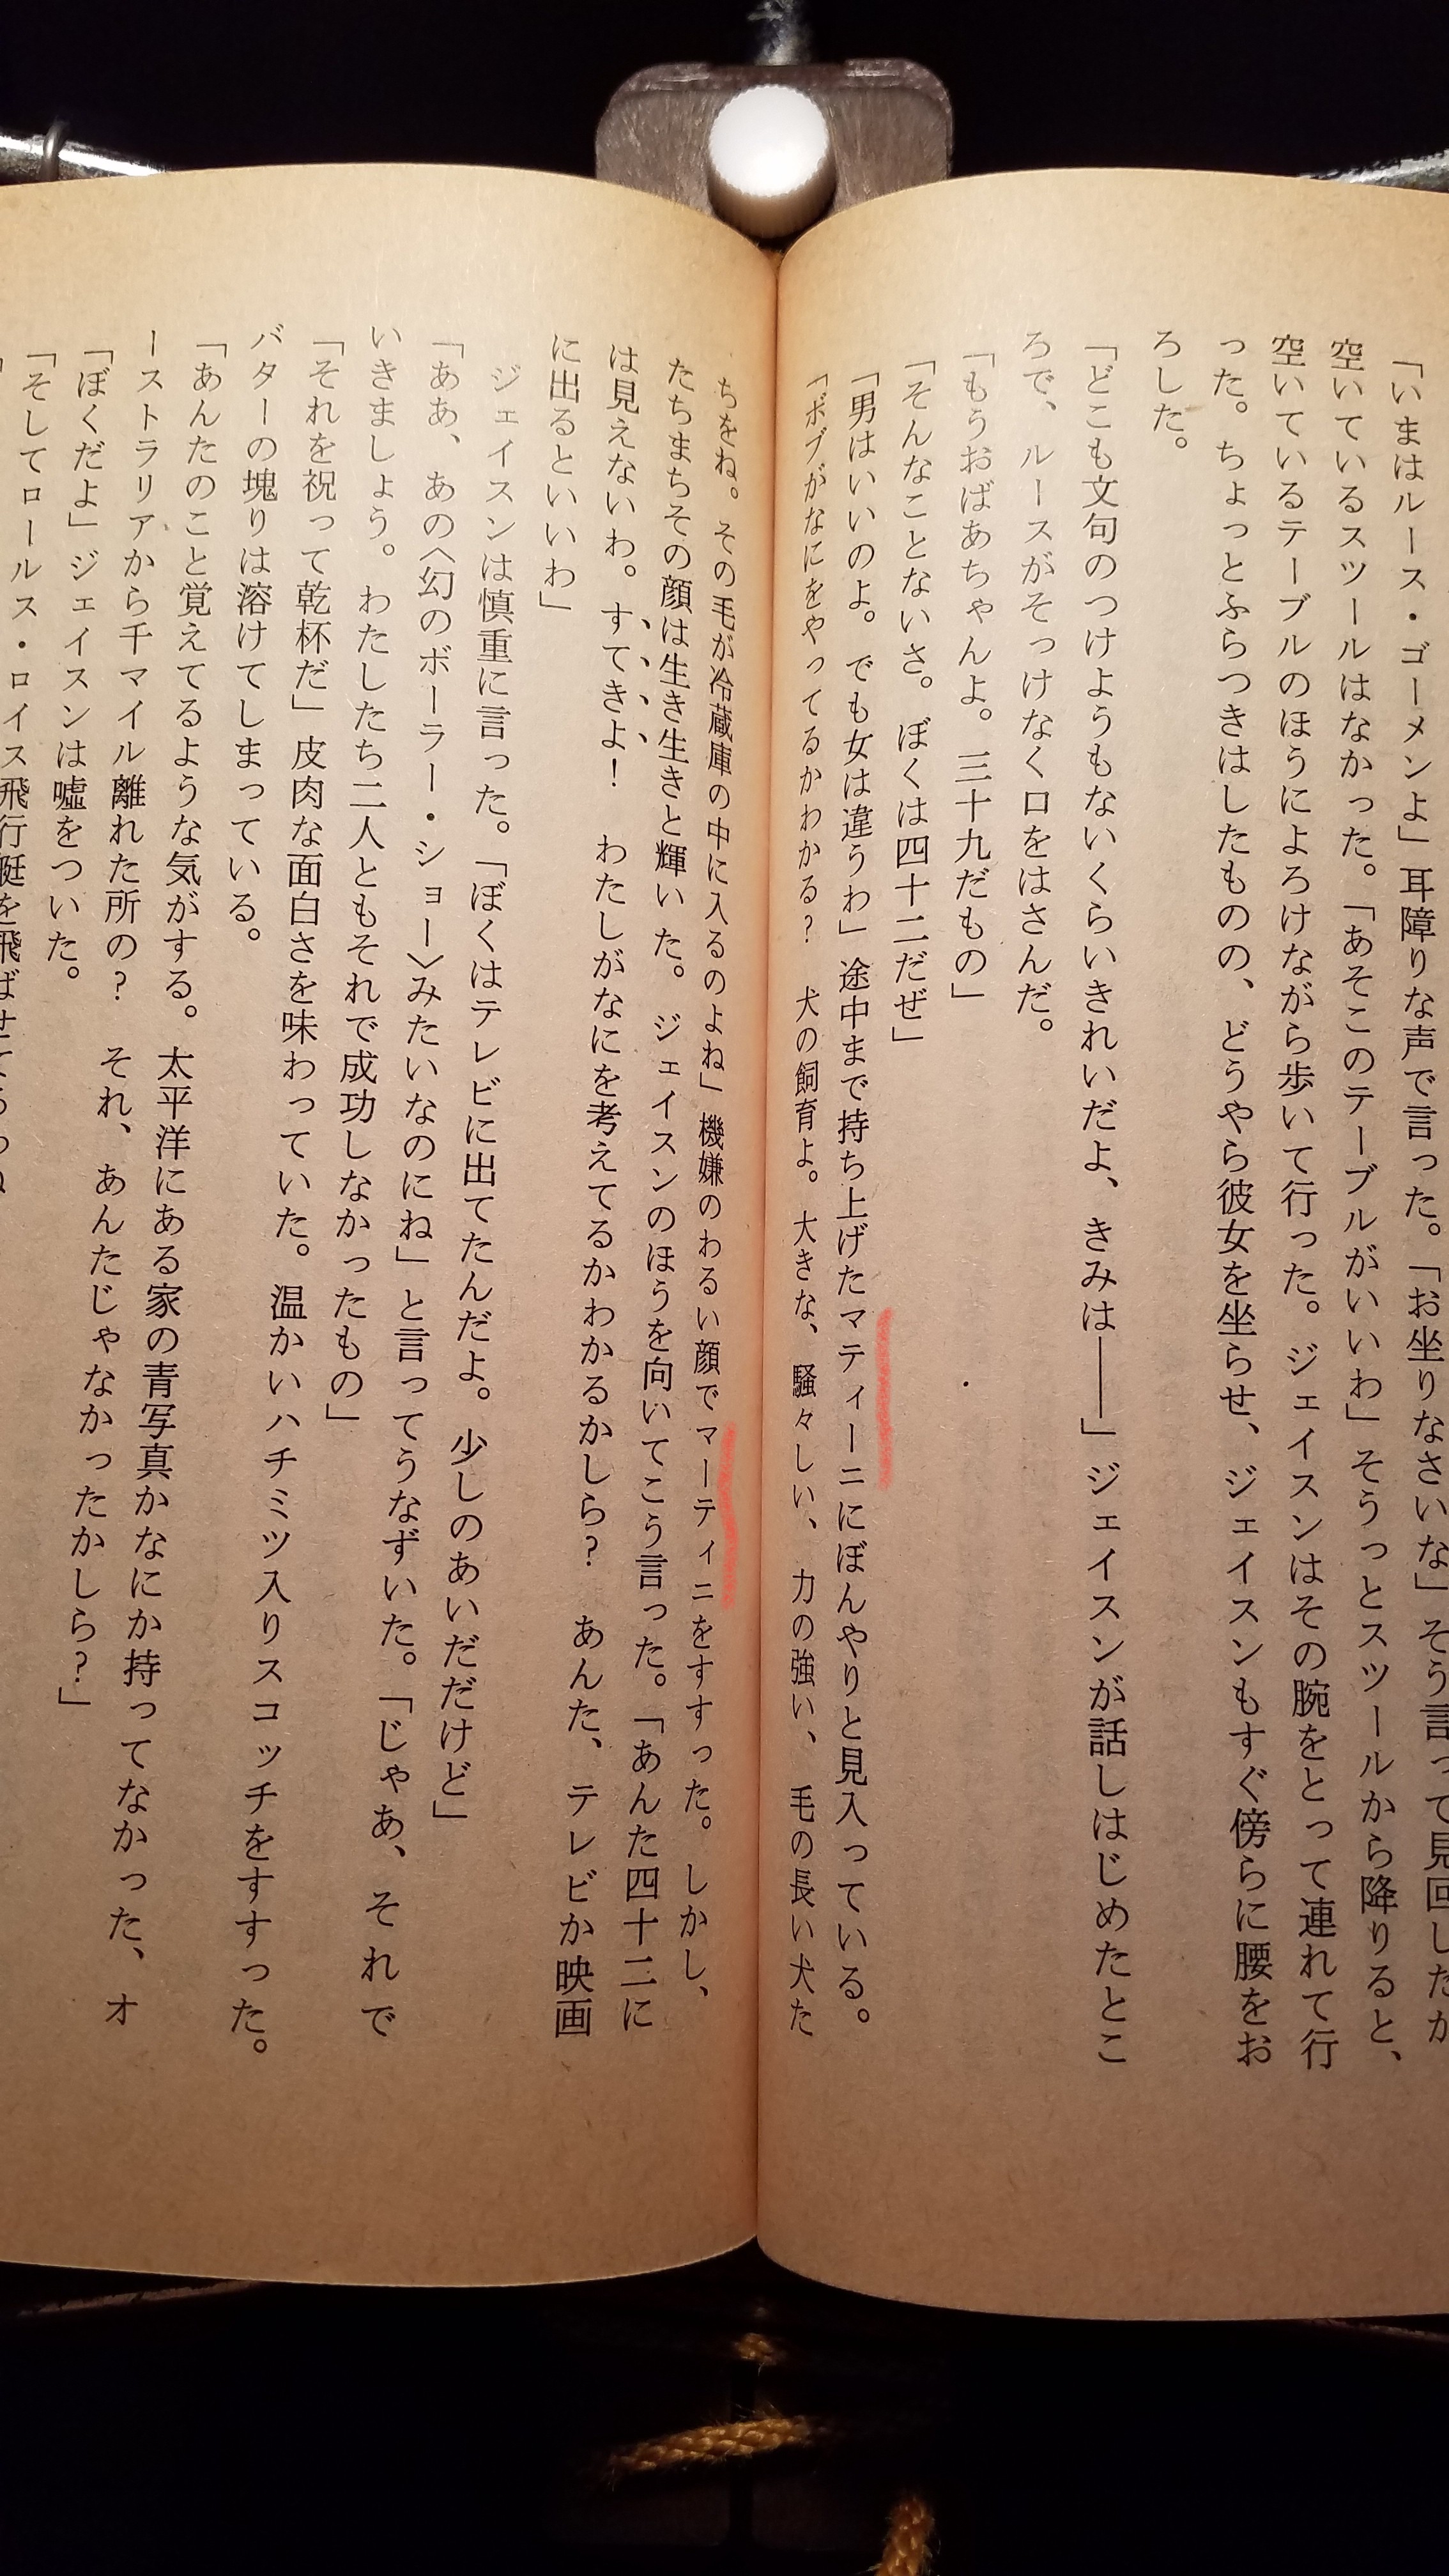 「いまはルース・ゴーメンよ」耳障りな声で言った。「お坐りなさいな」そう言って見回したが
空いているスツールはなかった。「あそこのテーブルがいいわ」そうっとスツールから降りると、
空いているテーブルのほうによろけながら歩いて行った。ジェイスンはその腕をとって連れて行
った。ちょっとふらつきはしたものの、どうやら彼女を坐らせ、ジェイスンもすぐ傍らに腰をお
ろした。
「どこも文句のつけようもないくらいきれいだよ、きみは――」ジェイスンが話しはじめたとこ
ろで、ルースがそっけなく口をはさんだ。
「もうおばあちゃんよ。三十九だもの」
「そんなことないさ。ぼくは四十二だぜ」
「男はいいのよ。でも女は違うわ」途中まで持ち上げたマティーニにぼんやりと見入っている。
「ボブがなにをやってるかわかる? 犬の飼育よ。大きな、騒々しい、力の強い、毛の長い犬た
ちをね。その毛が冷蔵庫の中に入るのよね」機嫌のわるい顔でマーティニをすすった。しかし、
たちまちその顔は生き生きと輝いた。ジェイスンのほうを向いてこう言った。「あんた四十二に
は見えないわ。すてきよ! わたしがなにを考えてるかわかるかしら? あんた、テレビか映画
に出るといいわ」
ジェイスンは慎重に言った。「ぼくはテレビに出てたんだよ。少しのあいだだけど」
「ああ、あの〈幻のボーラー・ショー〉みたいなのにね」と言ってうなずいた。「じゃあ、それで
いきましょう。わたしたち二人ともそれで成功しなかったもの」
「それを祝って乾杯だ」皮肉な面白さを味わっていた。温かいハチミツ入りスコッチをすすった。
バターの塊りは溶けてしまっている。
「あんたのこと覚えてるような気がする。太平洋にある家の青写真かなにか持ってなかった、オ
ーストラリアから千マイル離れた所の? それ、あんたじゃなかったかしら?」
「ぼくだよ」ジェイスンは嘘をついた。
「そしてロールス・ロイス飛行艇を飛ばせて